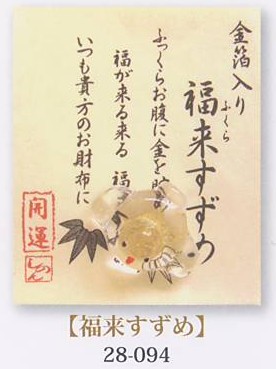 金箔入り
ふくら
福来すずめ
ふっくらお腹に金を貯め
福が来る来る 福
いつも貴方のお財布に
開運
【福来すずめ】
28-094